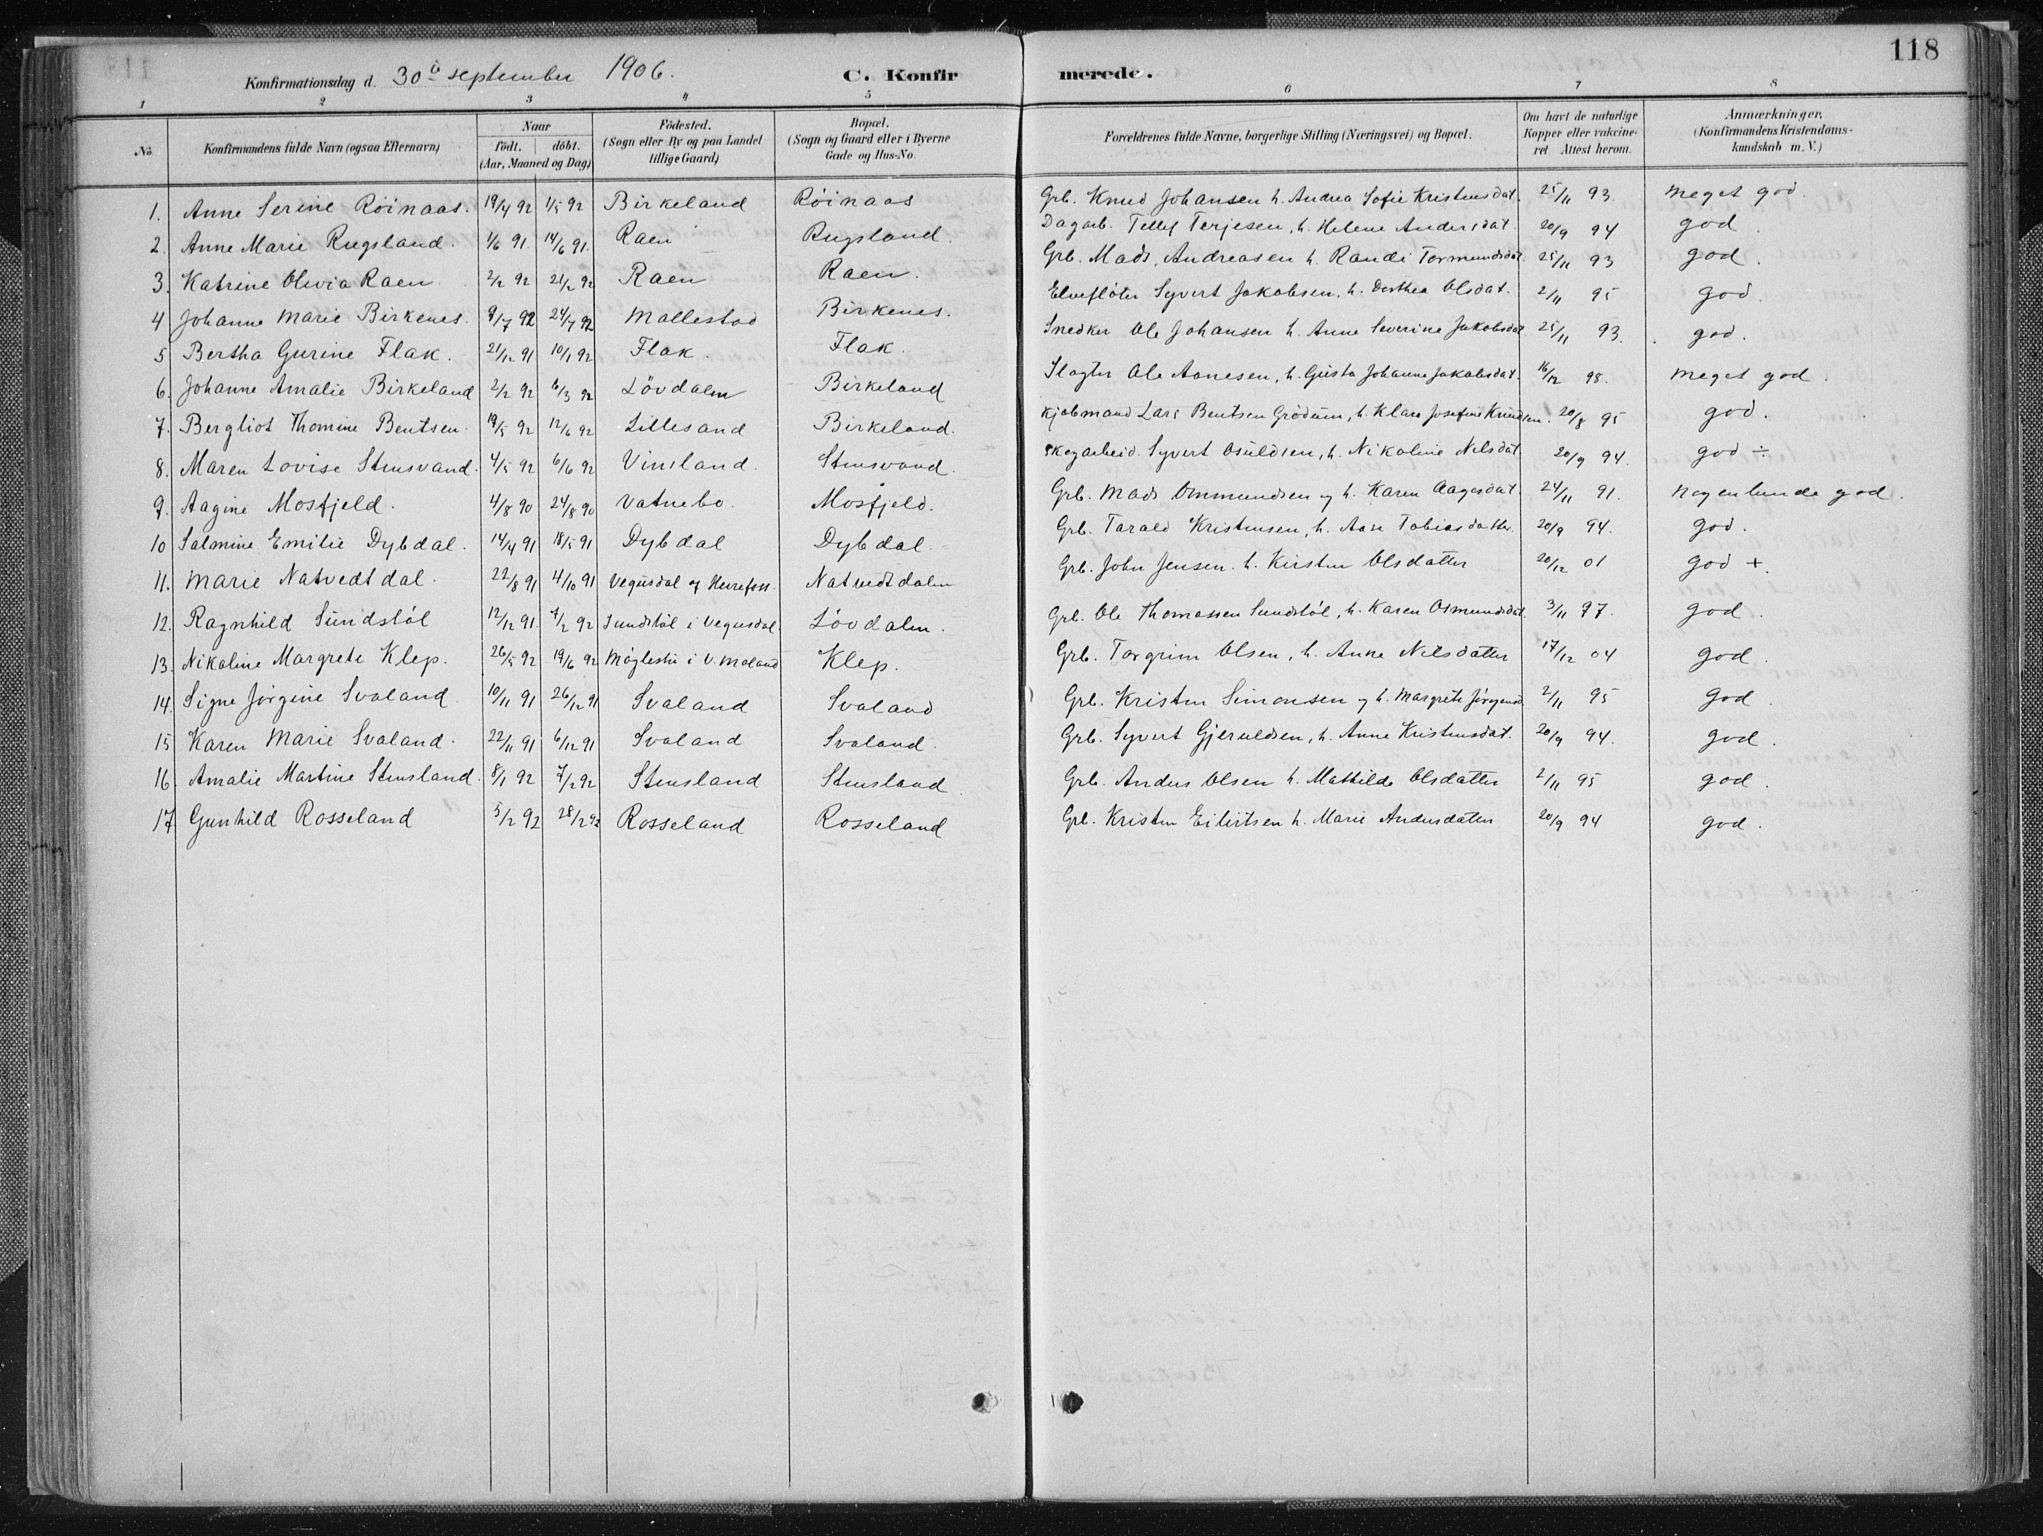 118
Konfirmationsdag d. 30te september 1906. C. Konfirmerede.
1 2 3 4 5 6 7 8
No. Konfirmandens fulde Navn (ogsaa Efternavn) Naar födt. döbt. (Aar, Maaned og Dag) Födested. (Sogn eller By og paa Landet tillige Gaard) Bopæl. (Sogn og Gaard eller i Byerne Gade og Hus-No. Forældrenes fulde Navne, borgerlige Stilling (Næringsvei) og Bopæl. Om havt de naturlige Kopper eller vakcineret Attest herom. Anmærkninger. (Konfirmandens Kristendomskundskab m. V.)
1. Anne Serine Röinaas. 19/4 92 1/5 92 Birkeland Röinaas Grb. Knud Johansen h. Andrea Sofie Kristensdat. 25/11 93. meget god.
2. Anne Marie Rugsland. 1/6 91. 14/6 91. Raen Rugsland. Dagarb. Tellef Terjesen, h. Helene Andersdat. 20/9 94 god.
3. Katrine Olivia Raen 2/2 92 21/2 92 Raen Raen. Grb. Mads Andreasen h. Randi Tormundsdat. 25/11 93 god.
4 Johanne Marie Birkenes. 9/7 92 24/7 92 Mollestad Birkenes. Elvefløter Syvert Jakobsen, h. Dorthea Olsdat. 2/11 95 god.
5 Bertha Gurine Flak. 21/12 91 10/1 92 Flak. Flak. Snedker Ole Johansen h. Anne Severine Jakobsdat 25/11 93. god.
6. Johanne Amalie Birkeland 2/2 92 6/3 92 Lövdalen Birkeland Slagter Ole Aanesen, h. Gusta Johanne Jakobsdat. 16/12 98. meget god.
7. Bergliot Thomine Bentsen. 19/5 92 12/6 92 Lillesand Birkeland. Kjøbmand Lars Bentsen Grødum, h. Klara Josefine Knudsen. 20/8 95 god.
8. Maren Lovise Stensvand. 4/5 92 6/6 92 Vinsland. Stensvand. Skogarbeid. Syvert Osuldsen, h. Nikoline Nilsdat. 20/9 94. god ÷
9. Aagine Mosfjeld. 4/8 90 24/8 90 Vatnebo. Mosfjeld. Grb. Mads Ommundsen og h. Karen Aagesdat. 24/11 91. nogenlunde god.
10 Salmine Emilie Dybdal. 14/4 91 18/5 91 Dybdal Dybdal. Grb. Tarald Kristensen, h. Aase Tobiasdatter. 20/9 94. god.
11. Marie Natvedtdal. 22/8 91 4/10 91 Vegusdal og Herefoss. Natvedtdalen Grb. John Jensen. h. Kirsten Olsdatter 20/12 01 god +.
12. Ragnhild Sundstöl 12/12 91. 7/2 92 Sundstöl i Vegusdal. Lövdalen. Grb. Ole Thomassen Sundstöl, h. Karen Osmundsdat. 3/11 97. god.
13. Nikoline Margrete Klep. 26/5 92 19/6 92 Möglestu i V. Moland Klep. Grb. Torgrim Olsen, h. Anne Nilsdatter 17/12 04 god.
14. Signe Jörgine Svaland. 10/11 91 26/12 91 Svaland Svaland Grb. Kristen Simonsen og h. Margrete Jörgensd. 2/11 95 god.
15 Karen Marie Svaland. 22/11 91 6/12 91 Svaland Svaland. Grb. Syvert Gjeruldsen, h. Anne Kristensdat. 20/9 94. god.
16. Amalie Martine Stensland. 8/1 92 7/2 92 Stensland Stensland. Grb. Anders Olsen h. Mathilde Olsdatter 2/11 95 god.
17. Gunhild Rosseland 5/2 92 28/2 92 Rosseland Rosseland Grb. Kristen Eilertsen h. Marie Andersdatter 20/9 94 god.